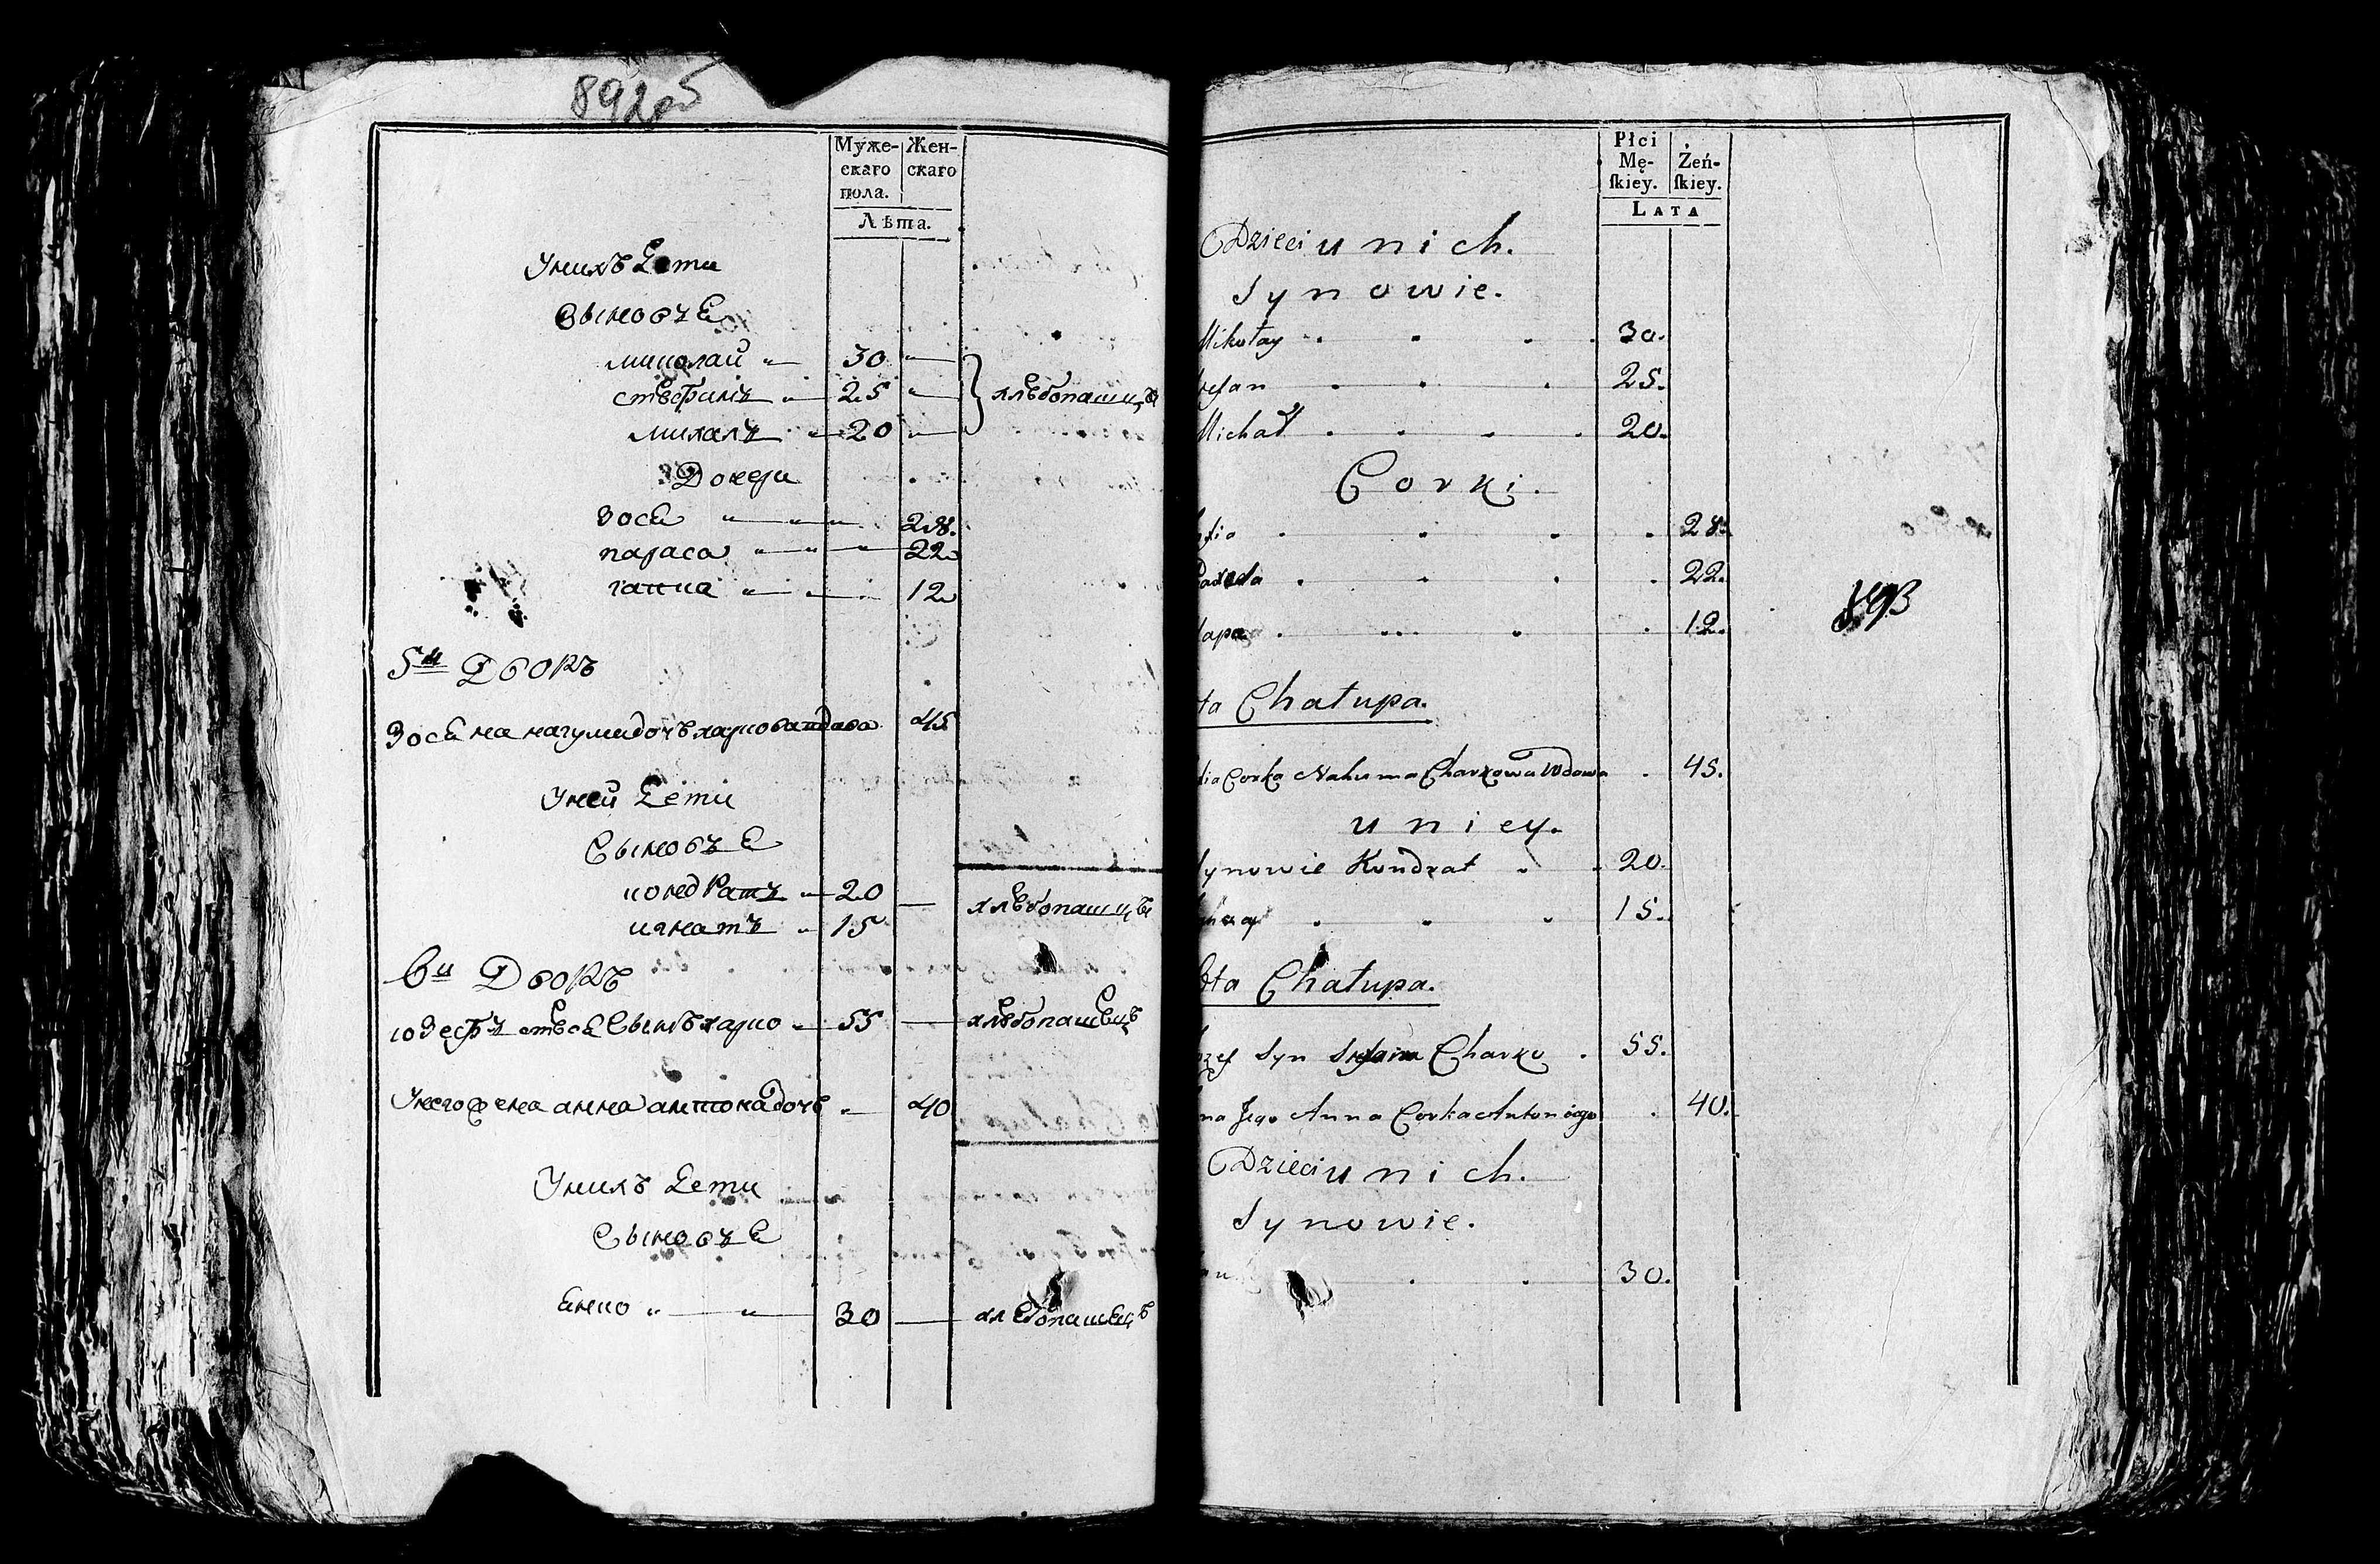 892об
Муже- Жен-
скаго скаго
пола.
Лѣта.
Унихъ Дети
Сыновъе
миколай 30
стефанъ 25 хлѣбопашцы
михалъ 20
Дочери
Зося 28.
параса 22
ганна 12
5й Дворъ
Зосѧ на нагума дочъ харкова вдова 45
Уней Дети
Сыновъе
кондратъ 20 хлѣбопашцы
игнатъ 15
6й Дворъ
юзефъ стефа Сынъ харко 55 хлѣбопашецъ
Унего жена анна антона дочъ 40
Унихъ Дети
Сыновъе
Янко 30 хлебопашецъ
Płci
Mę- Żeń-
ſkiey. ſkiey.
LATA
Dzieci u nich.
Synowie.
Mikołay 30.
Stefan 25.
Michał 20.
Corki.
28.
22.
12.
893
ta Chałupa.
Corka Nahuma Charkowa Wdowa 45.
u niey.
Synowie Kondrat 20.
15.
6ta Chałupa.
Syn Stefana Charko 55.
Jego Anna Corka Antoniego 40.
Dzieci u nich.
Synowie.
30.